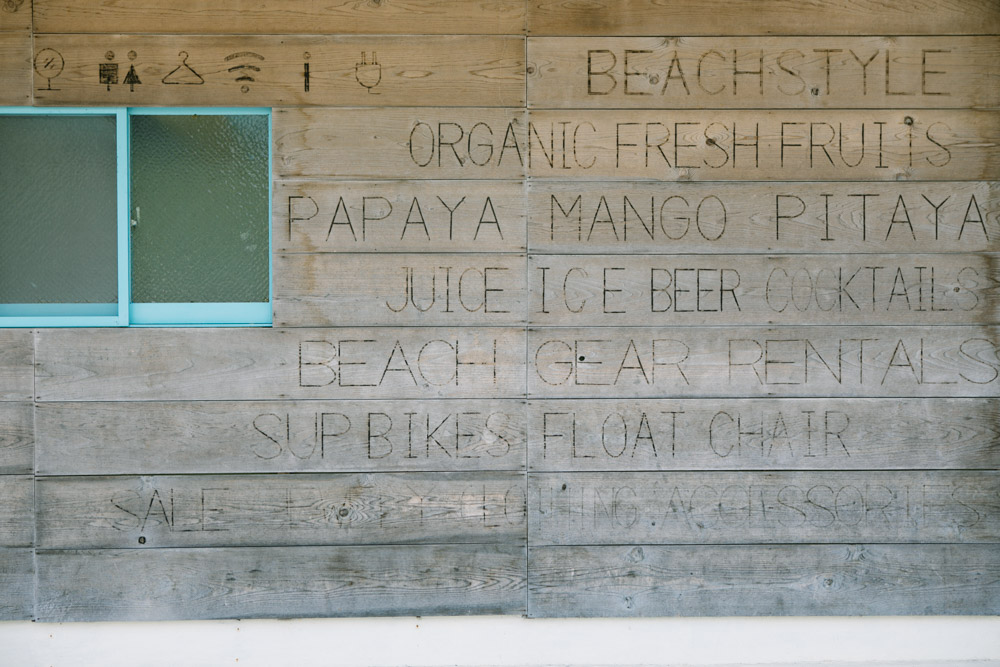 BEACHSTYLE
ORGANIC FRESH FRUITS
PAPAYA MANGO PITAYA
JUICE ICE BEER COCKTAILS
BEACH GEAR RENTALS
SUP BIKES FLOAT CHAIR
SALE ACCESSORIES